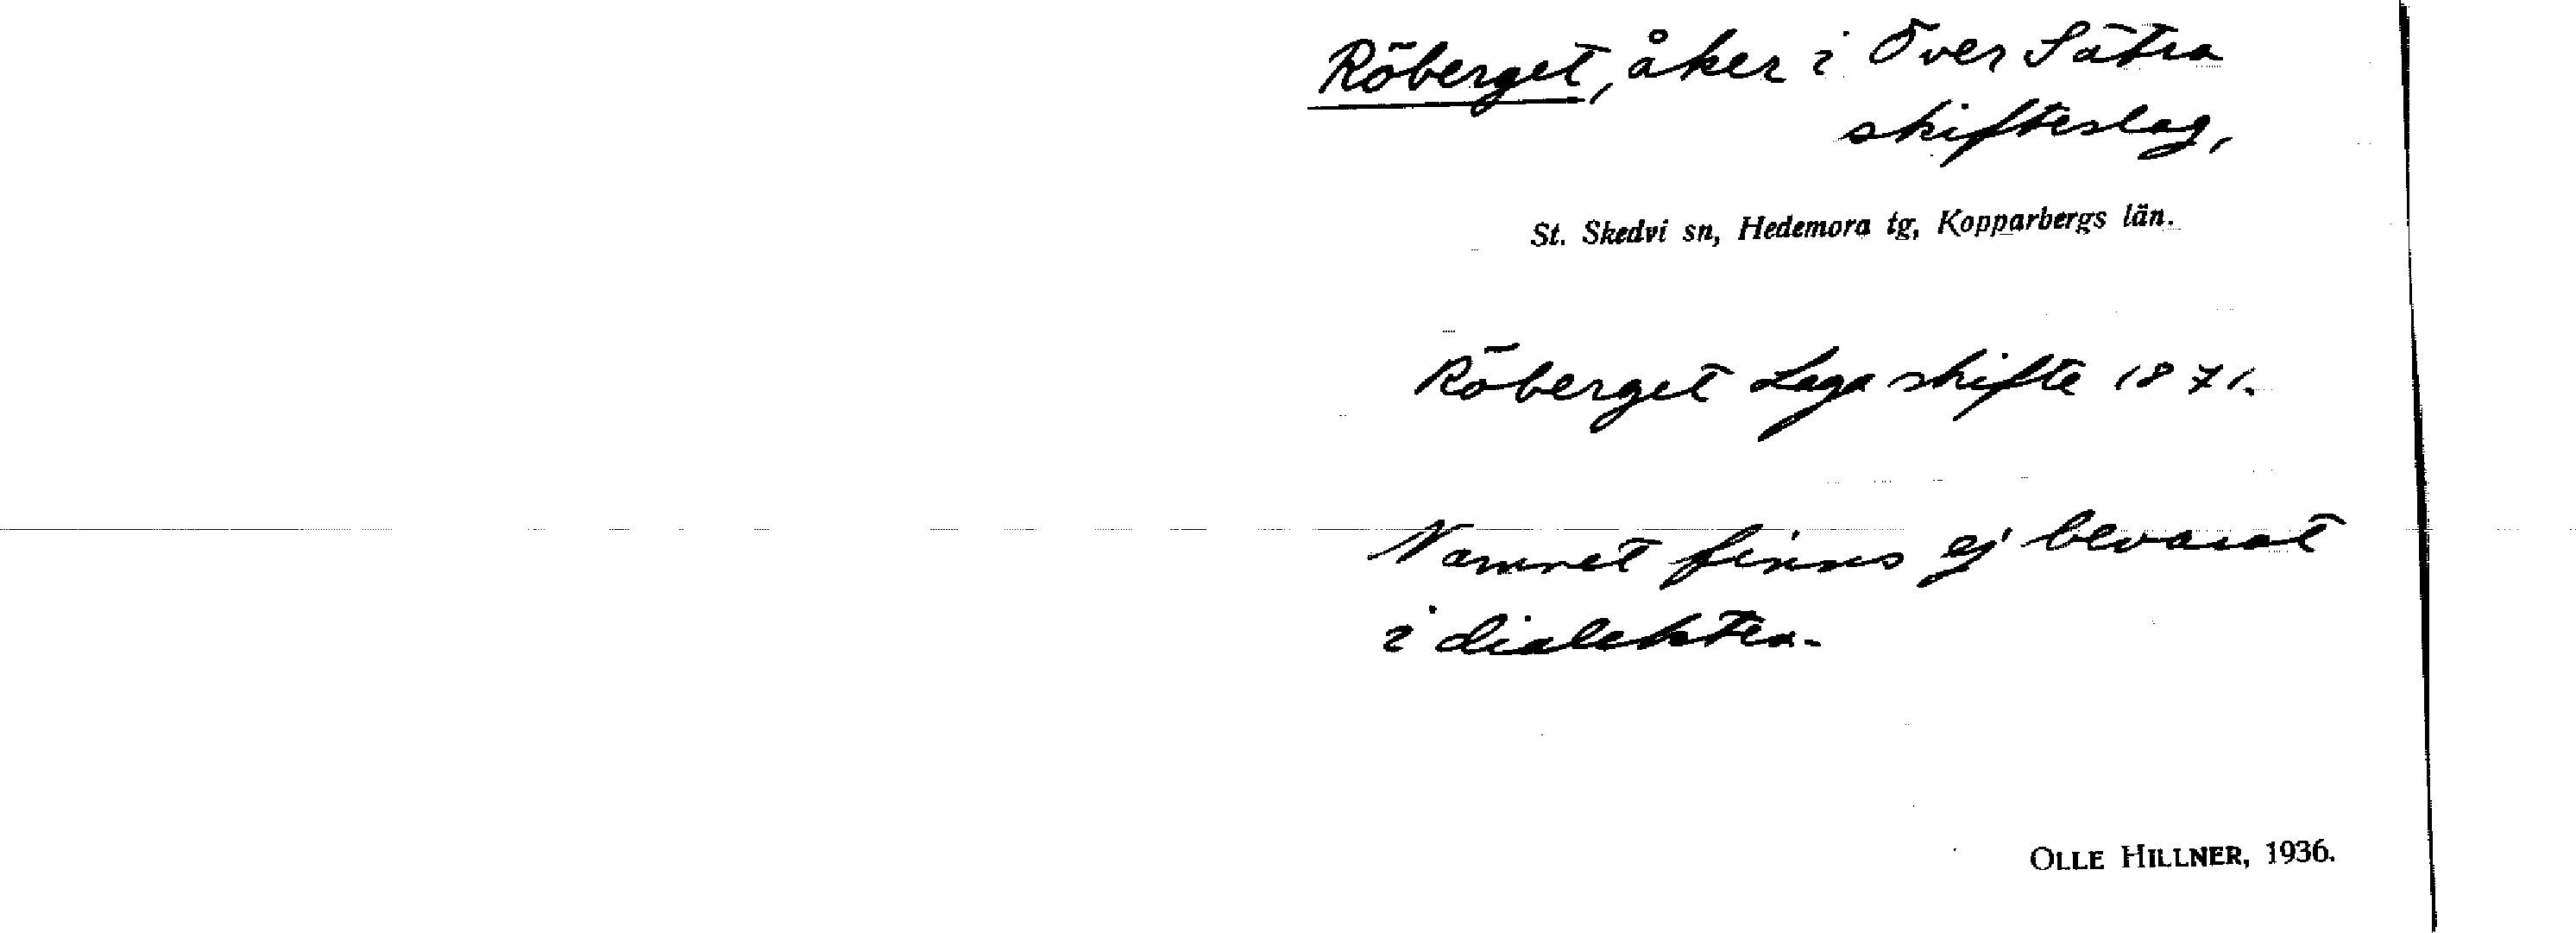 Röberget, åker i Över Sätra
skifteslag,
St. Skedvi sn, Hedemora tg, Kopparbergs län.
Röberget Laga skifte 1871.
Namnet finns ej bevarat
i dialekten.
OLLE HILLNER, 1936.